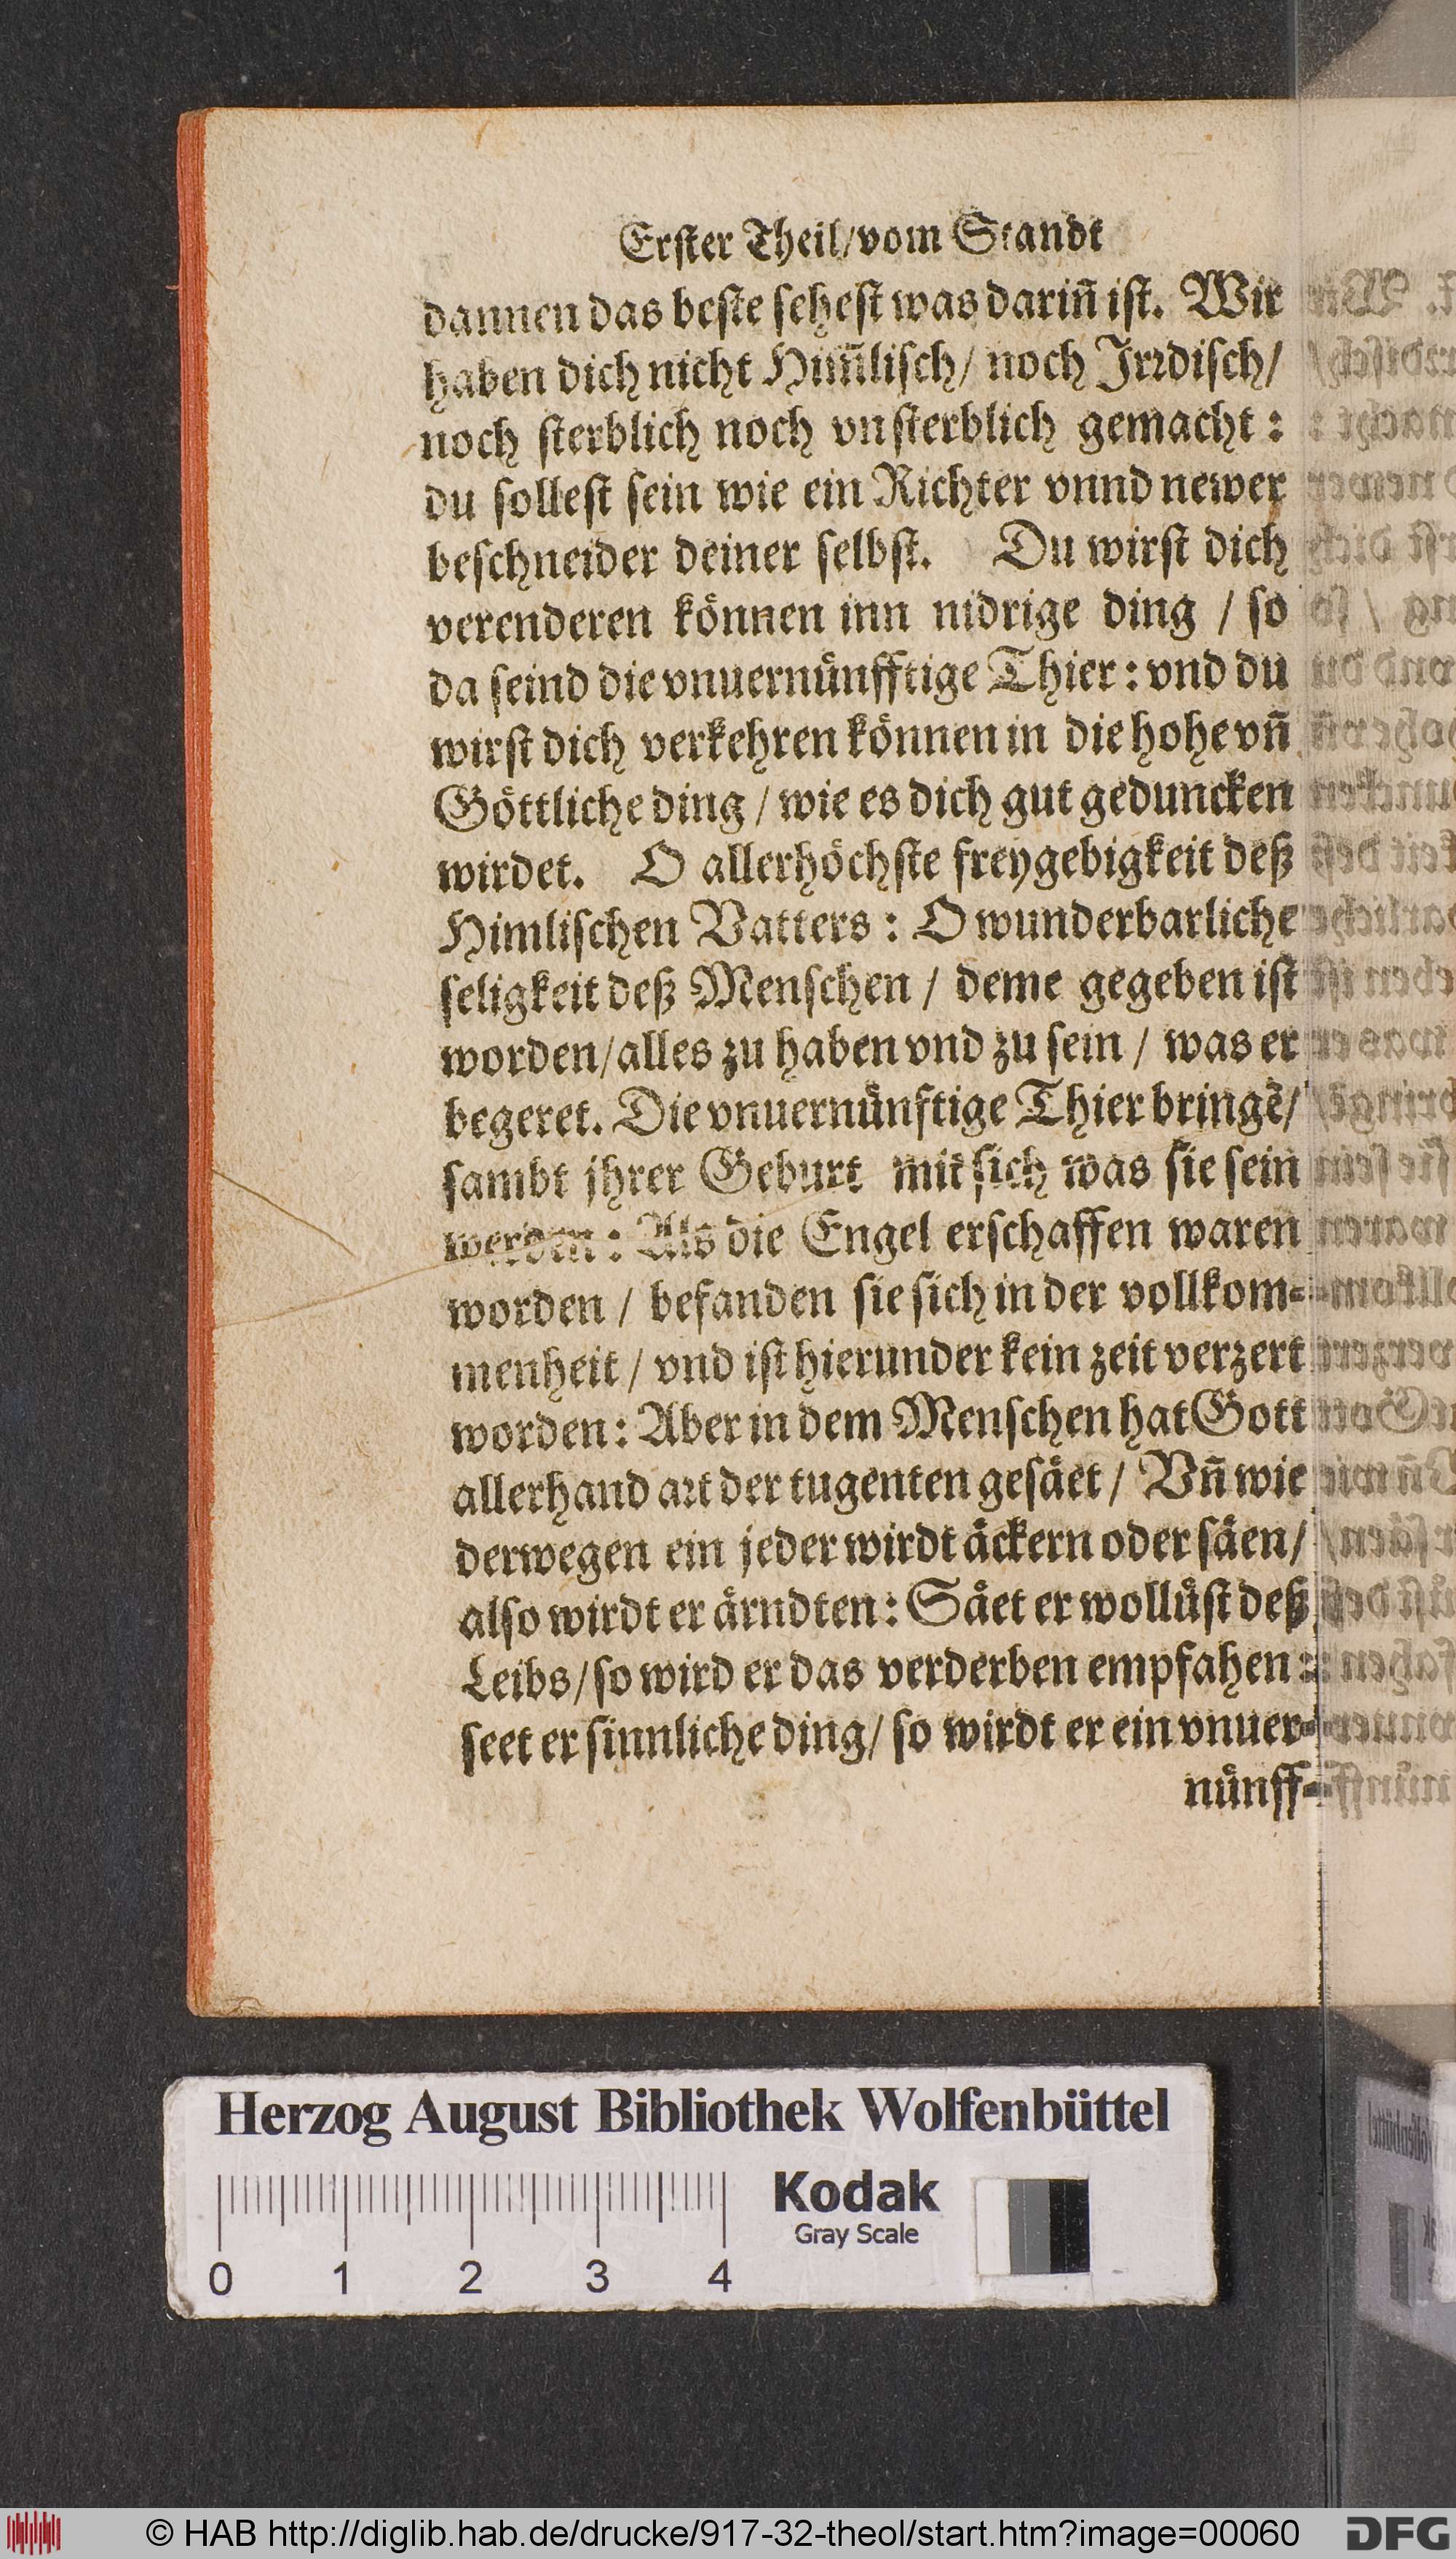 Erſter Theil/vom Standt
dannen das beſte ſeheſt was dariñ iſt. Wir
haben dich nicht Him̃liſch/ noch Jrꝛdiſch/
noch ſterblich noch vnſterblich gemacht:
du ſolleſt ſein wie ein Richter vnnd newer
beſchneider deiner ſelbſt. Du wirſt dich
verenderen koͤnnen inn nidrige ding / ſo
da ſeind die vnuernuͤnfftige Thier: vnd du
wirſt dich verkehren koͤnnen in die hohe vñ
Goͤttliche ding / wie es dich gut geduncken
wirdet. O allerhoͤchſte freygebigkeit deß
Himliſchen Vatters: O wunderbarliche
ſeligkeit deß Menſchen / deme gegeben iſt
worden/alles zu haben vnd zu ſein / was er
begeret. Die vnuernuͤnftige Thier bringẽ/
ſambt jhrer Geburt mit ſich was ſie ſein
werden: Als die Engel erſchaffen waren
worden / befanden ſie ſich in der vollkom-
menheit / vnd iſt hierunder kein zeit verzert
worden: Aber in dem Menſchen hat Gott
allerhand aꝛt der tugenten geſaͤet / Vñ wie
derwegen ein jeder wirdt aͤckern oder ſaͤen/
alſo wirdt er aͤrndten: Saͤet er wolluͤſt deß
Leibs/ſo wird er das verderben empfahen:
ſeet er ſinnliche ding/ ſo wirdt er ein vnuer-
nuͤnff-
Herzog August Bibliothek Wolfenbüttel
0 1 2 3 4
Kodak
Gray Scale
© HAB http://diglib.hab.de/drucke/917-32-theol/start.htm?image=00060
DFG